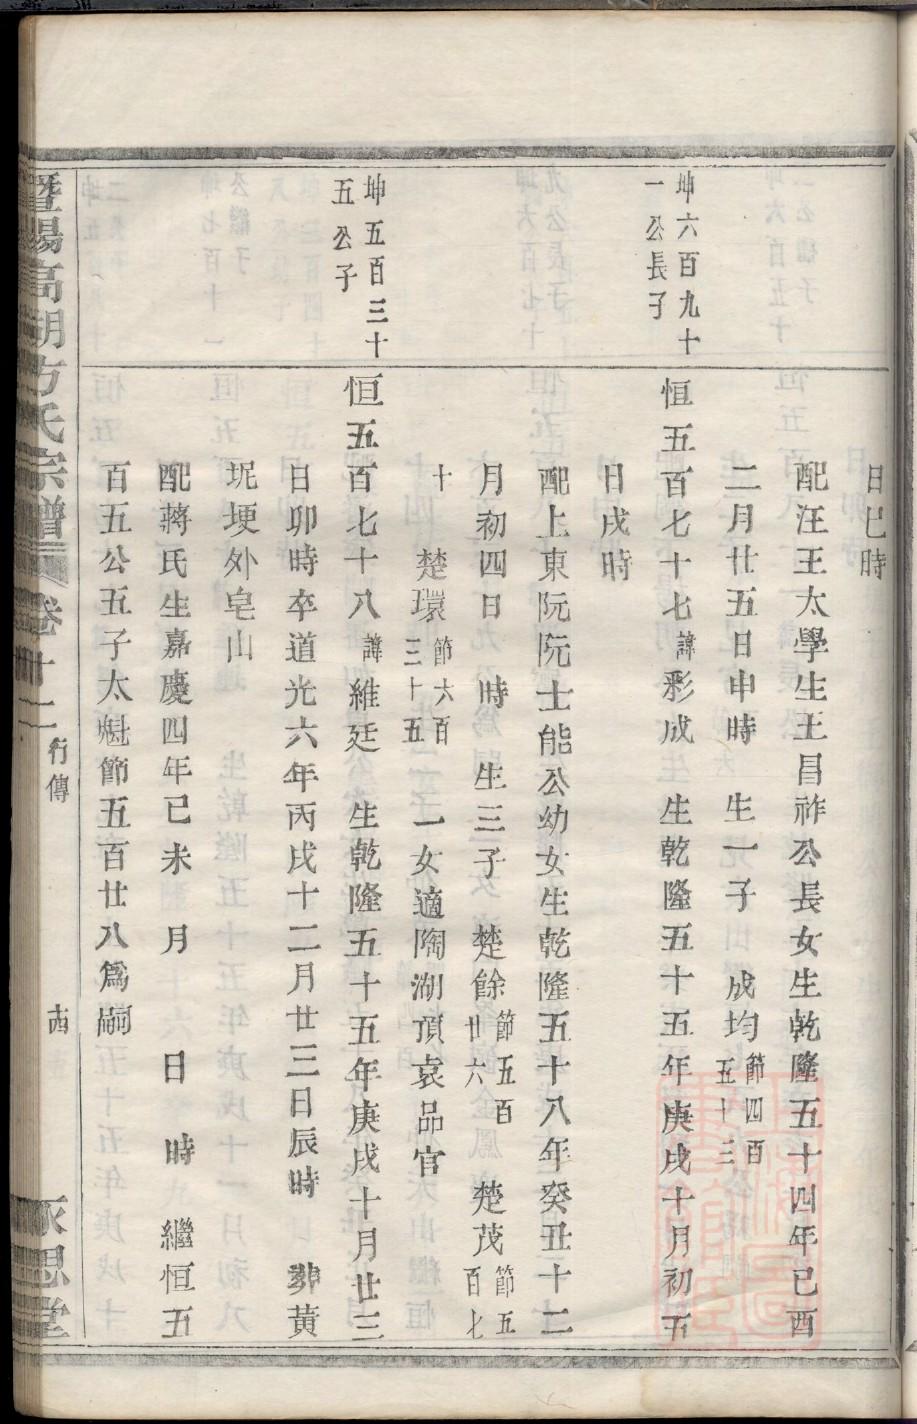 日巳時
配汪王太學生王昌祚公長女生乾隆五十四年己酉
二月廿五日申時 生一子 成均節四百五十三
坤六百九十一公長子
恒五百七十七諱彩成 生乾隆五十五年庚戌十月初五
日戌時
配上東阮阮士能公幼女生乾隆五十八年癸丑十二
月初四日 時 生三子 楚餘節五百廿六 楚茂節五百七
十 楚環節六百三十五 一女適陶湖頂袁品官
坤五百三十五公子
恒五百七十八諱維廷 生乾隆五十五年庚戌十月廿三
日卯時卒道光六年丙戌十二月廿三日辰時 葬黄
坭埂外皂山
配蔣氏生嘉慶四年己未 月 日 時 繼恒五
百五公五子太魁節五百廿八爲嗣
暨陽高湖方氏宗譜 卷十二 行傳 永思堂